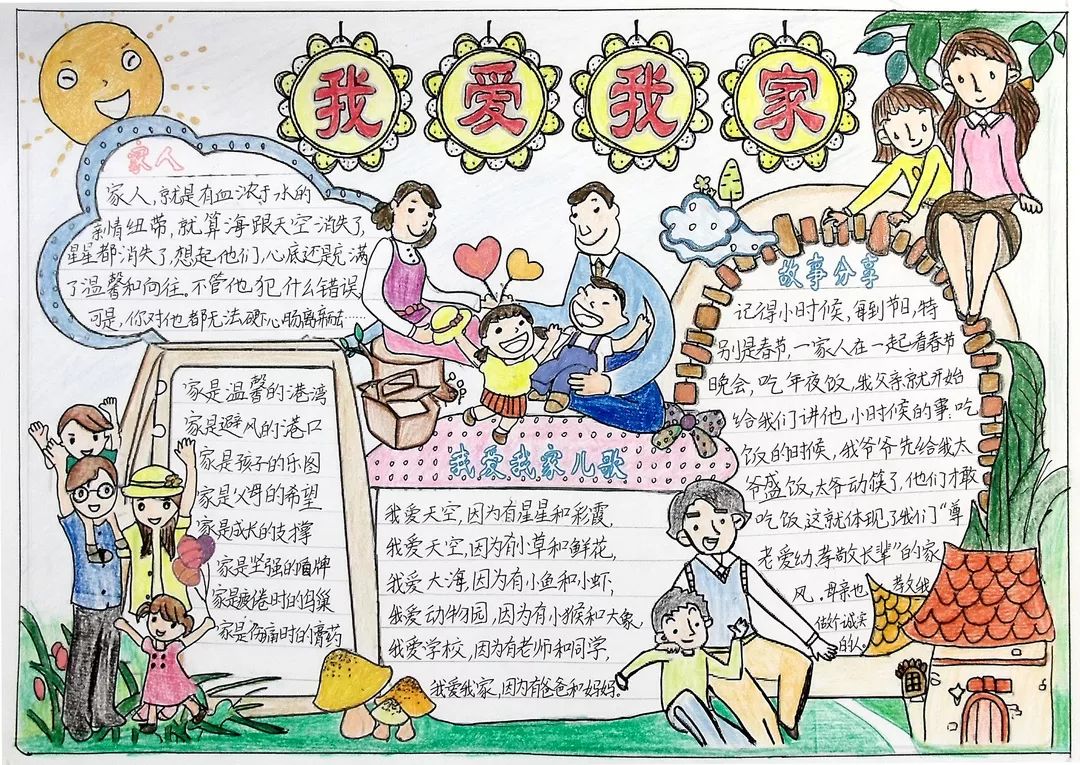 我爱我家
家人
家人,就是有血浓于水的
亲情纽带,就算海跟天空消失了,
星星都消失了,想起他们,心底还是充满
了温馨和向往。不管他犯什么错误,
可是,你对他都无法硬下心肠离弃……
家是温馨的港湾
家是避风的港口
家是孩子的乐园
家是父母的希望
家是成长的支撑
家是坚强的盾牌
家是疲倦时的鸟巢
家是伤痛时的膏药
我爱我家儿歌
我爱天空,因为有星星和彩霞,
我爱天空,因为有小草和鲜花,
我爱大海,因为有小鱼和小虾,
我爱动物园,因为有小猴和大象,
我爱学校,因为有老师和同学,
我爱我家,因为有爸爸和妈妈。
故事分享
记得小时候,每到节日,特
别是春节,一家人在一起看春节
晚会,吃年夜饭,我父亲就开始
给我们讲他小时候的事,吃
饭的时候,我爷爷先给我太
爷盛饭,太爷动筷了,他们才敢
吃饭,这就体现了我们“尊
老爱幼,孝敬长辈”的家
风,母亲也教我
做个诚实
的人。